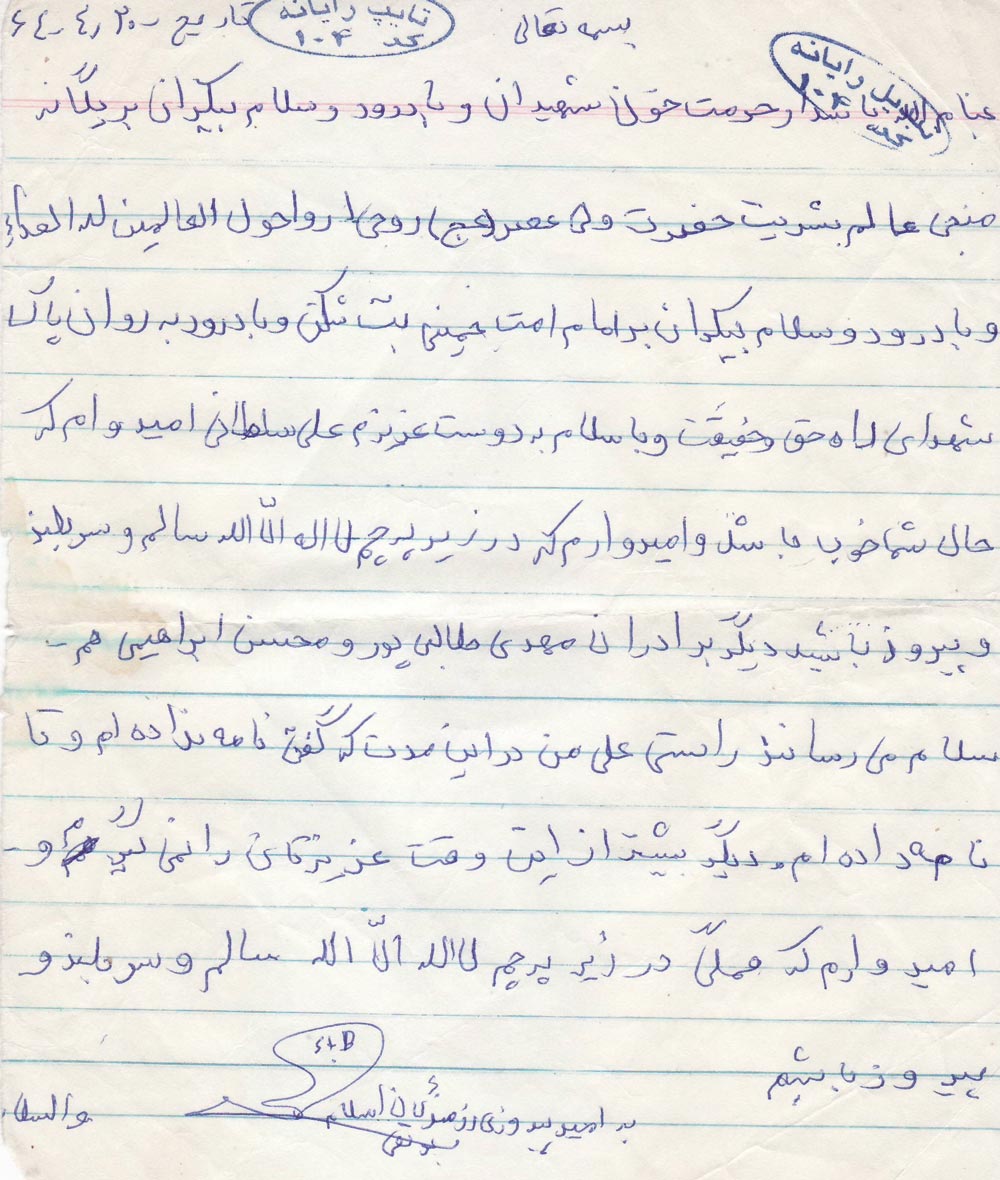 بسمه تعالی
تاریخ ۲۰ر۴ر۶۴
تایپ رایانه
کد ۱۰۴
رایانه
بنام الله پاسدار حرمت خون شهیدان و با درود و سلام بیکران بر یگانه
منجی عالم بشریت حضرت ولی عصر (عج) روحی ارواحول العالمین له الفداء
و با درود و سلام بیکران بر امام امت خمینی بت شکن و با درود به روان پاک
شهدای راه حق و حقیقت و با سلام به دوست عزیزم علی سلطانی امیدوام که
حال شما خوب باشد و امیدوارم که در زیر پرچم لا اله الّا الله سالم و سربلند
و پیروز باشید دیگر برادران مهدی طالبی پور و محسن ابراهیمی هم -
سلام می رسانند راستی علی من در این مدت که گفتی نامه نداده ام و تا
نامه داده ام. دیگر بیشتر از این وقت عزیزتان را نمی گیرم و -
امیدوارم که همگی در زیر پرچم لا الله الّا الله سالم و سربلند و
پیروز باشیم
به امید پیروزی رزمندگان اسلام
والسلام